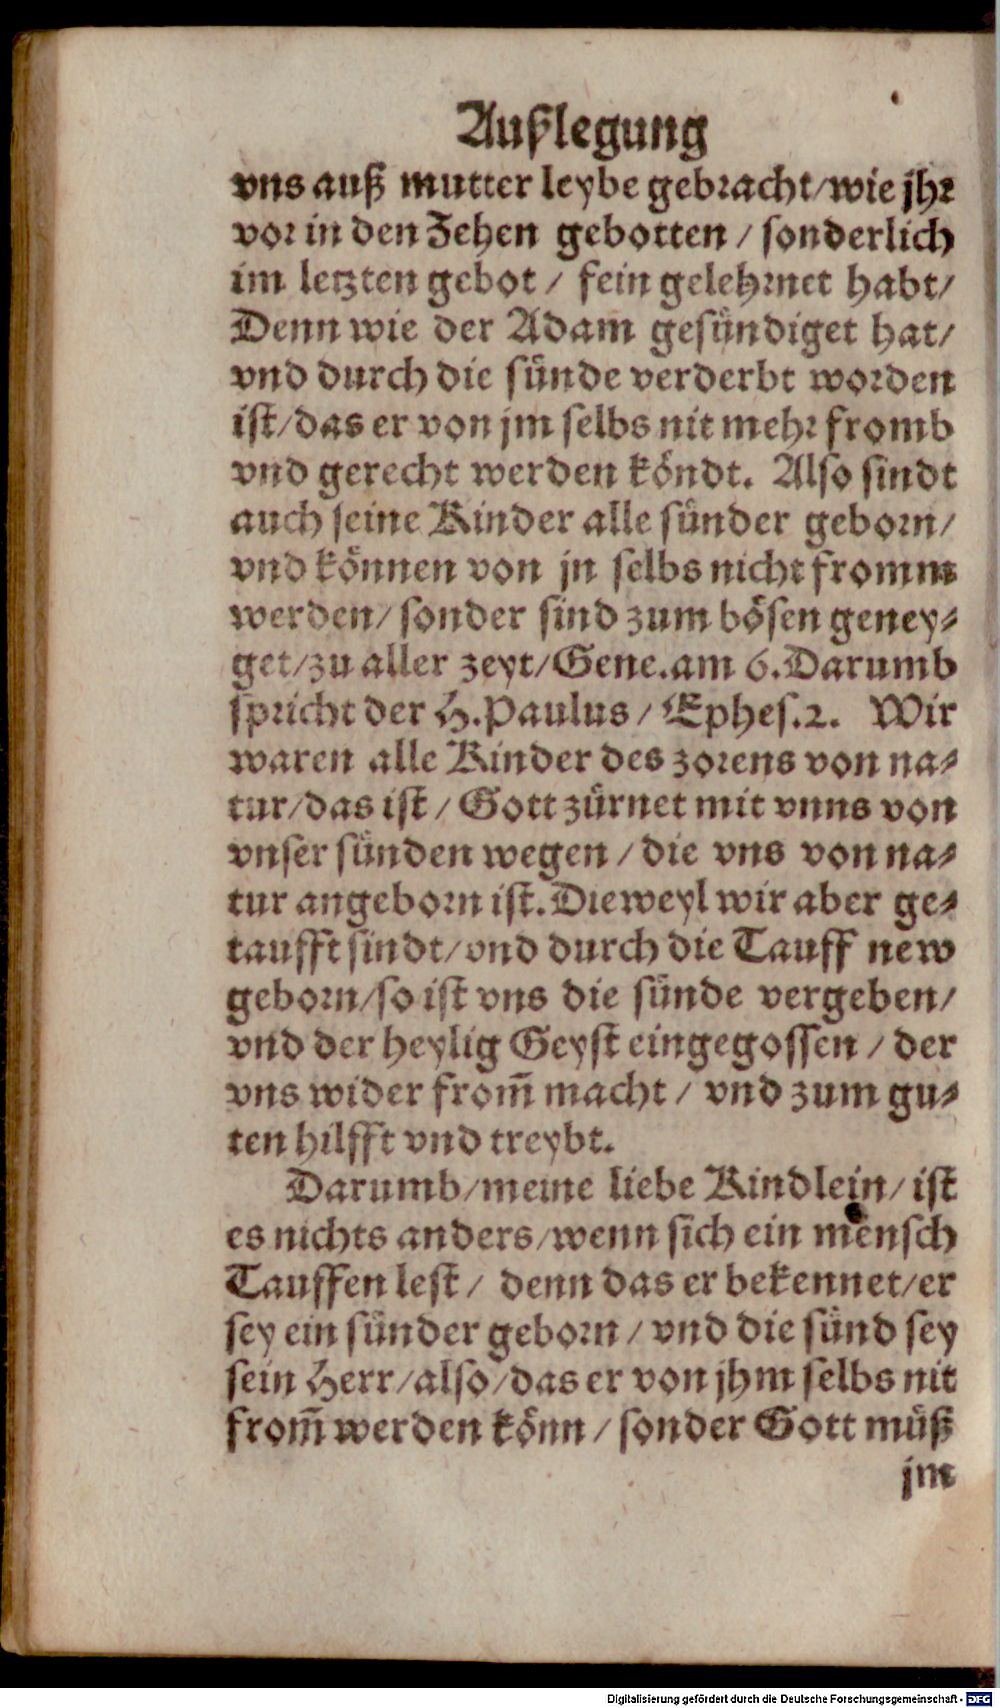 Außlegung
vns auß mutter leybe gebracht/wie jhr
vor in den Zehen gebotten / sonderlich
im letzten gebot / fein gelehrnet habt/
Denn wie der Adam gesündiget hat/
vnd durch die sünde verderbt worden
ist/das er von jm selbs nit mehr fromb
vnd gerecht werden köndt. Also sindt
auch seine Kinder alle sünder geborn/
vnd können von jn selbs nicht fromm
werden/ sonder sind zum bösen geney-
get/zu aller zeyt/Gene.am 6.Darumb
spricht der H.Paulus / Ephes.2. Wir
waren alle Kinder des zorens von na-
tur/das ist / Gott zürnet mit vnns von
vnser sünden wegen / die vns von na-
tur angeborn ist. Dieweyl wir aber ge-
taufft sindt/vnd durch die Tauff new
geborn/so ist vns die sünde vergeben/
vnd der heylig Geyst eingegossen / der
vns wider from̃ macht / vnd zum gu-
ten hilfft vnd treybt.
Darumb/meine liebe Kindlein/ ist
es nichts anders/wenn sich ein mensch
Tauffen lest / denn das er bekennet/er
sey ein sünder geborn / vnd die sünd sey
sein Herr/also/das er von jhm selbs nit
from̃ werden könn / sonder Gott müß
jm
Digitalisierung gefördert durch die Deutsche Forschungsgemeinschaft - DFG